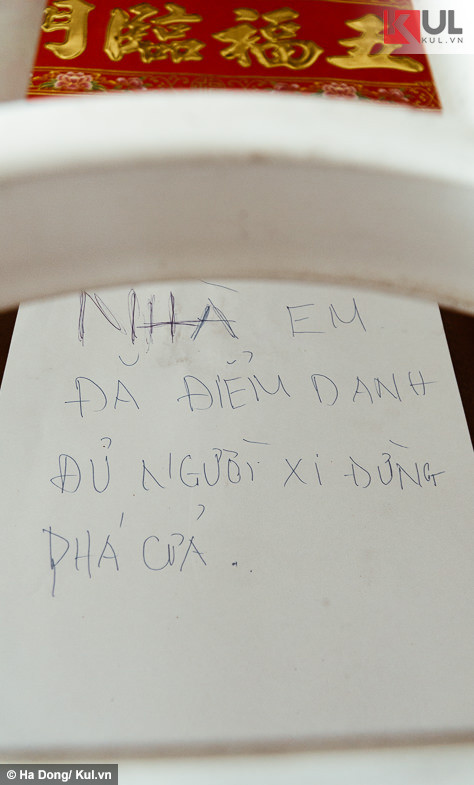 五福臨門
KUL
KUL.VN
NHÀ EM
ĐĂ ĐIỂM DANH
ĐỦ NGƯỜI XI ĐỪNG
PHÁ CỬA ..
© Ha Dong/ Kul.vn